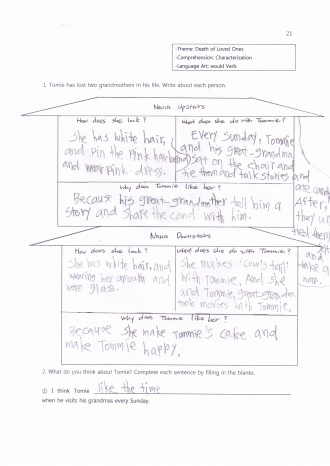 21
-Theme: Death of Loved Ones
-Comprehension: Characterization
-Language Art: would Verb
1. Tomie has lost two grandmothers in his life. Write about each person.
Nana Upstairs
How does she look?
She has white hair,
and pin the pink
and pink dress.
What does she do with Tommie?
Every Sunday, Tommie
and his great-grandma
sat on the chair and
tie them and talk stories and
ate candy
After,
they un
tied them
and
take a
nap.
Why does Tommie like her?
Because his great-grandmother tell him a
story and share the cand with him.
Nana Downstairs
How does she look?
She has white hair, and
wearing her
glass.
What does she do with Tommie?
She makes "cow's tail"
with Tommie. And She
and Tommie, great-grandma
took movies with Tommie.
Why does Tommie like her?
Because she make Tommie's cake and
make Tommie happy.
2. What do you think about Tomie? Complete each sentence by filling in the blanks.
① I think Tomie like the time
when he visits his grandmas every Sunday.